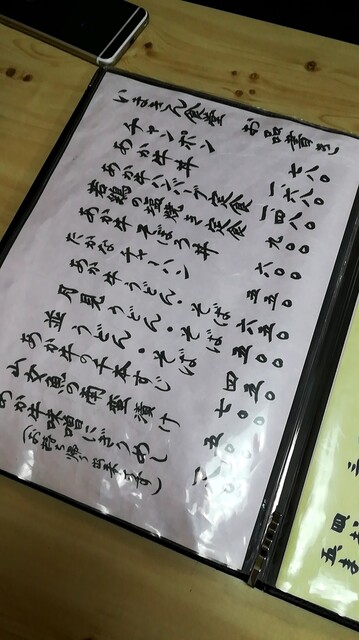 いまきん食堂 お品書き
チャンポン 七八〇
あか牛丼 一六八〇
あか牛ハンバーグ定食 一四八〇
若鶏の塩焼き定食 九〇〇
あか牛そぼろ丼 六〇〇
たかなチャーハン 五五〇
あか牛うどん・そば 六五〇
月見うどん・そば 五〇〇
並うどん・そば 四五〇
あか牛の千本すじ 七〇〇
山女魚の南蛮漬け 五〇〇
あか牛味噌にぎりめし 一八〇
(お持ち帰り出来ます)